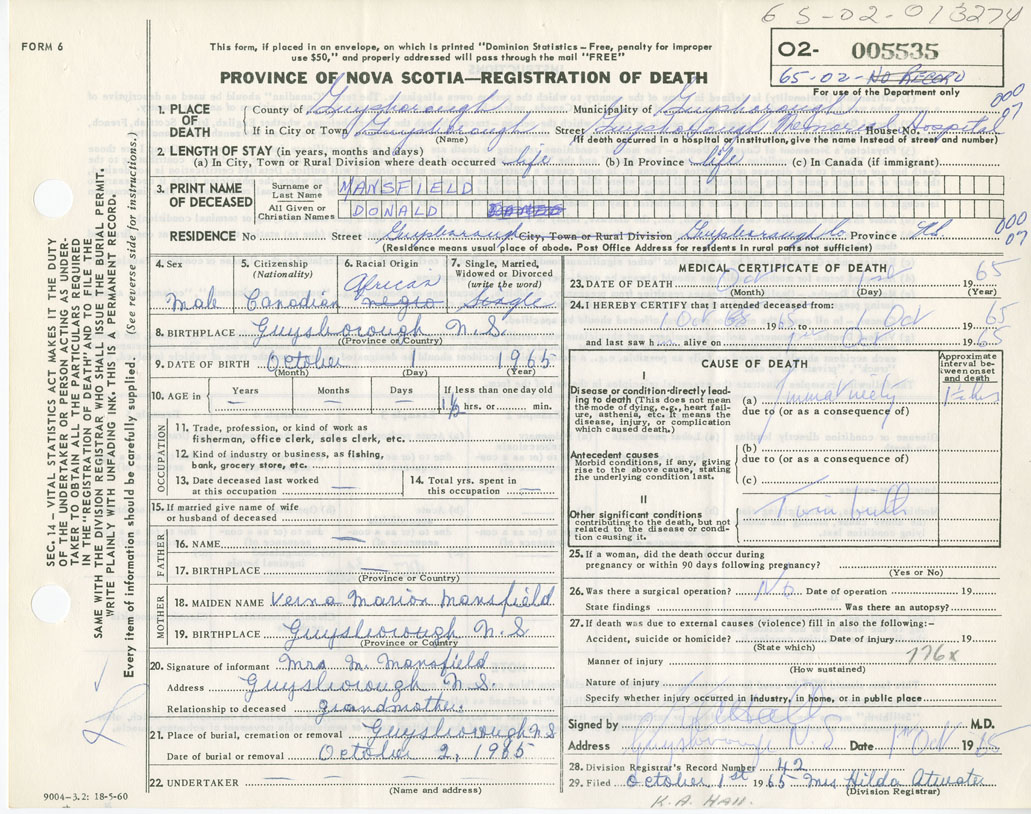 65-02-013274
FORM 6
This form, if placed in an envelope, on which is printed "Dominion Statistics – Free, penalty for improper
use $50," and properly addressed will pass through the mail "FREE"
PROVINCE OF NOVA SCOTIA—REGISTRATION OF DEATH
02- 005535
65-02- NO RECORD
For use of the Department only
000
07
1. PLACE OF DEATH
County of Guysborough Municipality of Guysborough
If in City or Town Guysborough Street Guysborough Memorial Hospital House No.
(Name) (If death occurred in a hospital or institution, give the name instead of street and number)
2. LENGTH OF STAY (in years, months and days)
(a) In City, Town or Rural Division where death occurred life (b) In Province life (c) In Canada (if immigrant)
3. PRINT NAME OF DECEASED
Surname or Last Name MANSFIELD
All Given or Christian Names DONALD
RESIDENCE No Street Guysborough City, Town or Rural Division Guysborough Co. Province N.S.
000
07
(Residence means usual place of abode. Post Office Address for residents in rural parts not sufficient)
SEC. 14 – VITAL STATISTICS ACT MAKES IT THE DUTY
OF THE UNDERTAKER OR PERSON ACTING AS UNDER-
TAKER TO OBTAIN ALL THE PARTICULARS REQUIRED
IN THE "REGISTRATION OF DEATH" AND TO FILE THE
SAME WITH THE DIVISION REGISTRAR WHO SHALL ISSUE THE BURIAL PERMIT.
WRITE PLAINLY WITH UNFADING INK. THIS IS A PERMANENT RECORD.
Every item of information should be carefully supplied. (See reverse side for instructions.)
4. Sex
Male
5. Citizenship
(Nationality)
Canadian
6. Racial Origin
African
negro
7. Single, Married,
Widowed or Divorced
(write the word)
Single
8. BIRTHPLACE Guysborough N.S.
(Province or Country)
9. DATE OF BIRTH October 1 1965
(Month) (Day) (Year)
10. AGE in Years — Months — Days — If less than one day old
1½ hrs. or min.
OCCUPATION
11. Trade, profession, or kind of work as
fisherman, office clerk, sales clerk, etc.
12. Kind of industry or business, as fishing,
bank, grocery store, etc.
13. Date deceased last worked
at this occupation —
14. Total yrs. spent in
this occupation —
15. If married give name of wife
or husband of deceased —
FATHER
16. NAME —
17. BIRTHPLACE —
(Province or Country)
MOTHER
18. MAIDEN NAME Verna Marion Mansfield
19. BIRTHPLACE Guysborough N.S
(Province or Country)
20. Signature of informant Mrs M. Mansfield
Address Guysborough N.S.
Relationship to deceased grandmother.
21. Place of burial, cremation or removal Guysborough N.S
Date of burial or removal October 2, 1965
22. UNDERTAKER — — — —
(Name and address)
9004–3.2: 18-5-60
MEDICAL CERTIFICATE OF DEATH
23. DATE OF DEATH Oct 1st 1965
(Month) (Day) (Year)
24. I HEREBY CERTIFY that I attended deceased from:
1 Oct 65 1965 to 1 Oct 1965
and last saw h alive on 1st Oct 1965
CAUSE OF DEATH
Approximate interval between onset and death
I
Disease or condition directly lead-
ing to death (This does not mean
the mode of dying, e.g., heart fail-
ure, asthenia, etc. It means the
disease, injury, or complication
which caused death.)
(a) Immaturity 1½ hrs
due to (or as a consequence of)
Antecedent causes
Morbid conditions, if any, giving
rise to the above cause, stating
the underlying condition last.
(b)
due to (or as a consequence of)
(c)
II
Other significant conditions
contributing to the death, but not
related to the disease or condi-
tion causing it.
Twin birth
25. If a woman, did the death occur during
pregnancy or within 90 days following pregnancy?
(Yes or No)
26. Was there a surgical operation? No Date of operation 19
State findings Was there an autopsy?
27. If death was due to external causes (violence) fill in also the following:–
Accident, suicide or homicide? Date of injury 19
(State which)
776x
Manner of injury
(How sustained)
Nature of injury
Specify whether injury occurred in industry, in home, or in public place
Signed by M.D.
Address Guysborough N.S Date 1st Oct 1965
28. Division Registrar's Record Number 42
29. Filed October 1st 1965 Mrs Hilda Atwater
(Division Registrar)
K.A. Hall.